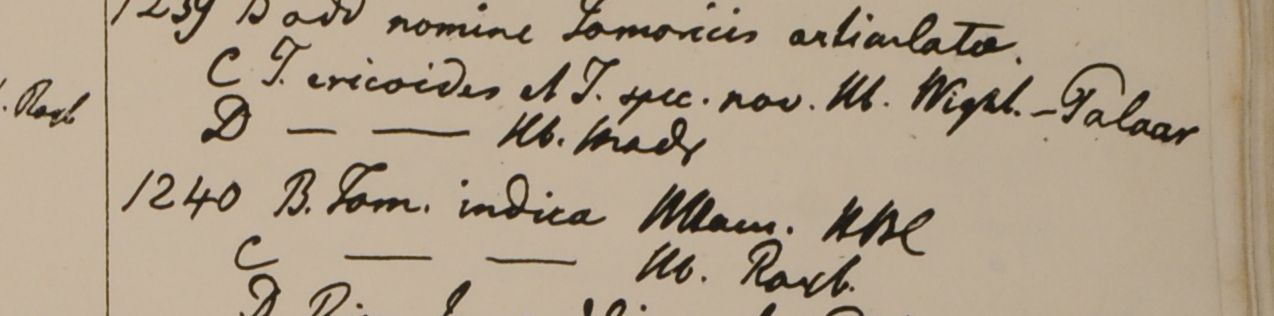 1239 B add nomine Tamaricis articulatae.
C T. ericoides et T. spec. nov. Hb. Wight. – Palaar
. Roxb
D — — Hb. Madr
1240 B. Tam. indica Willd. HBC
C — — Hb. Roxb.
D